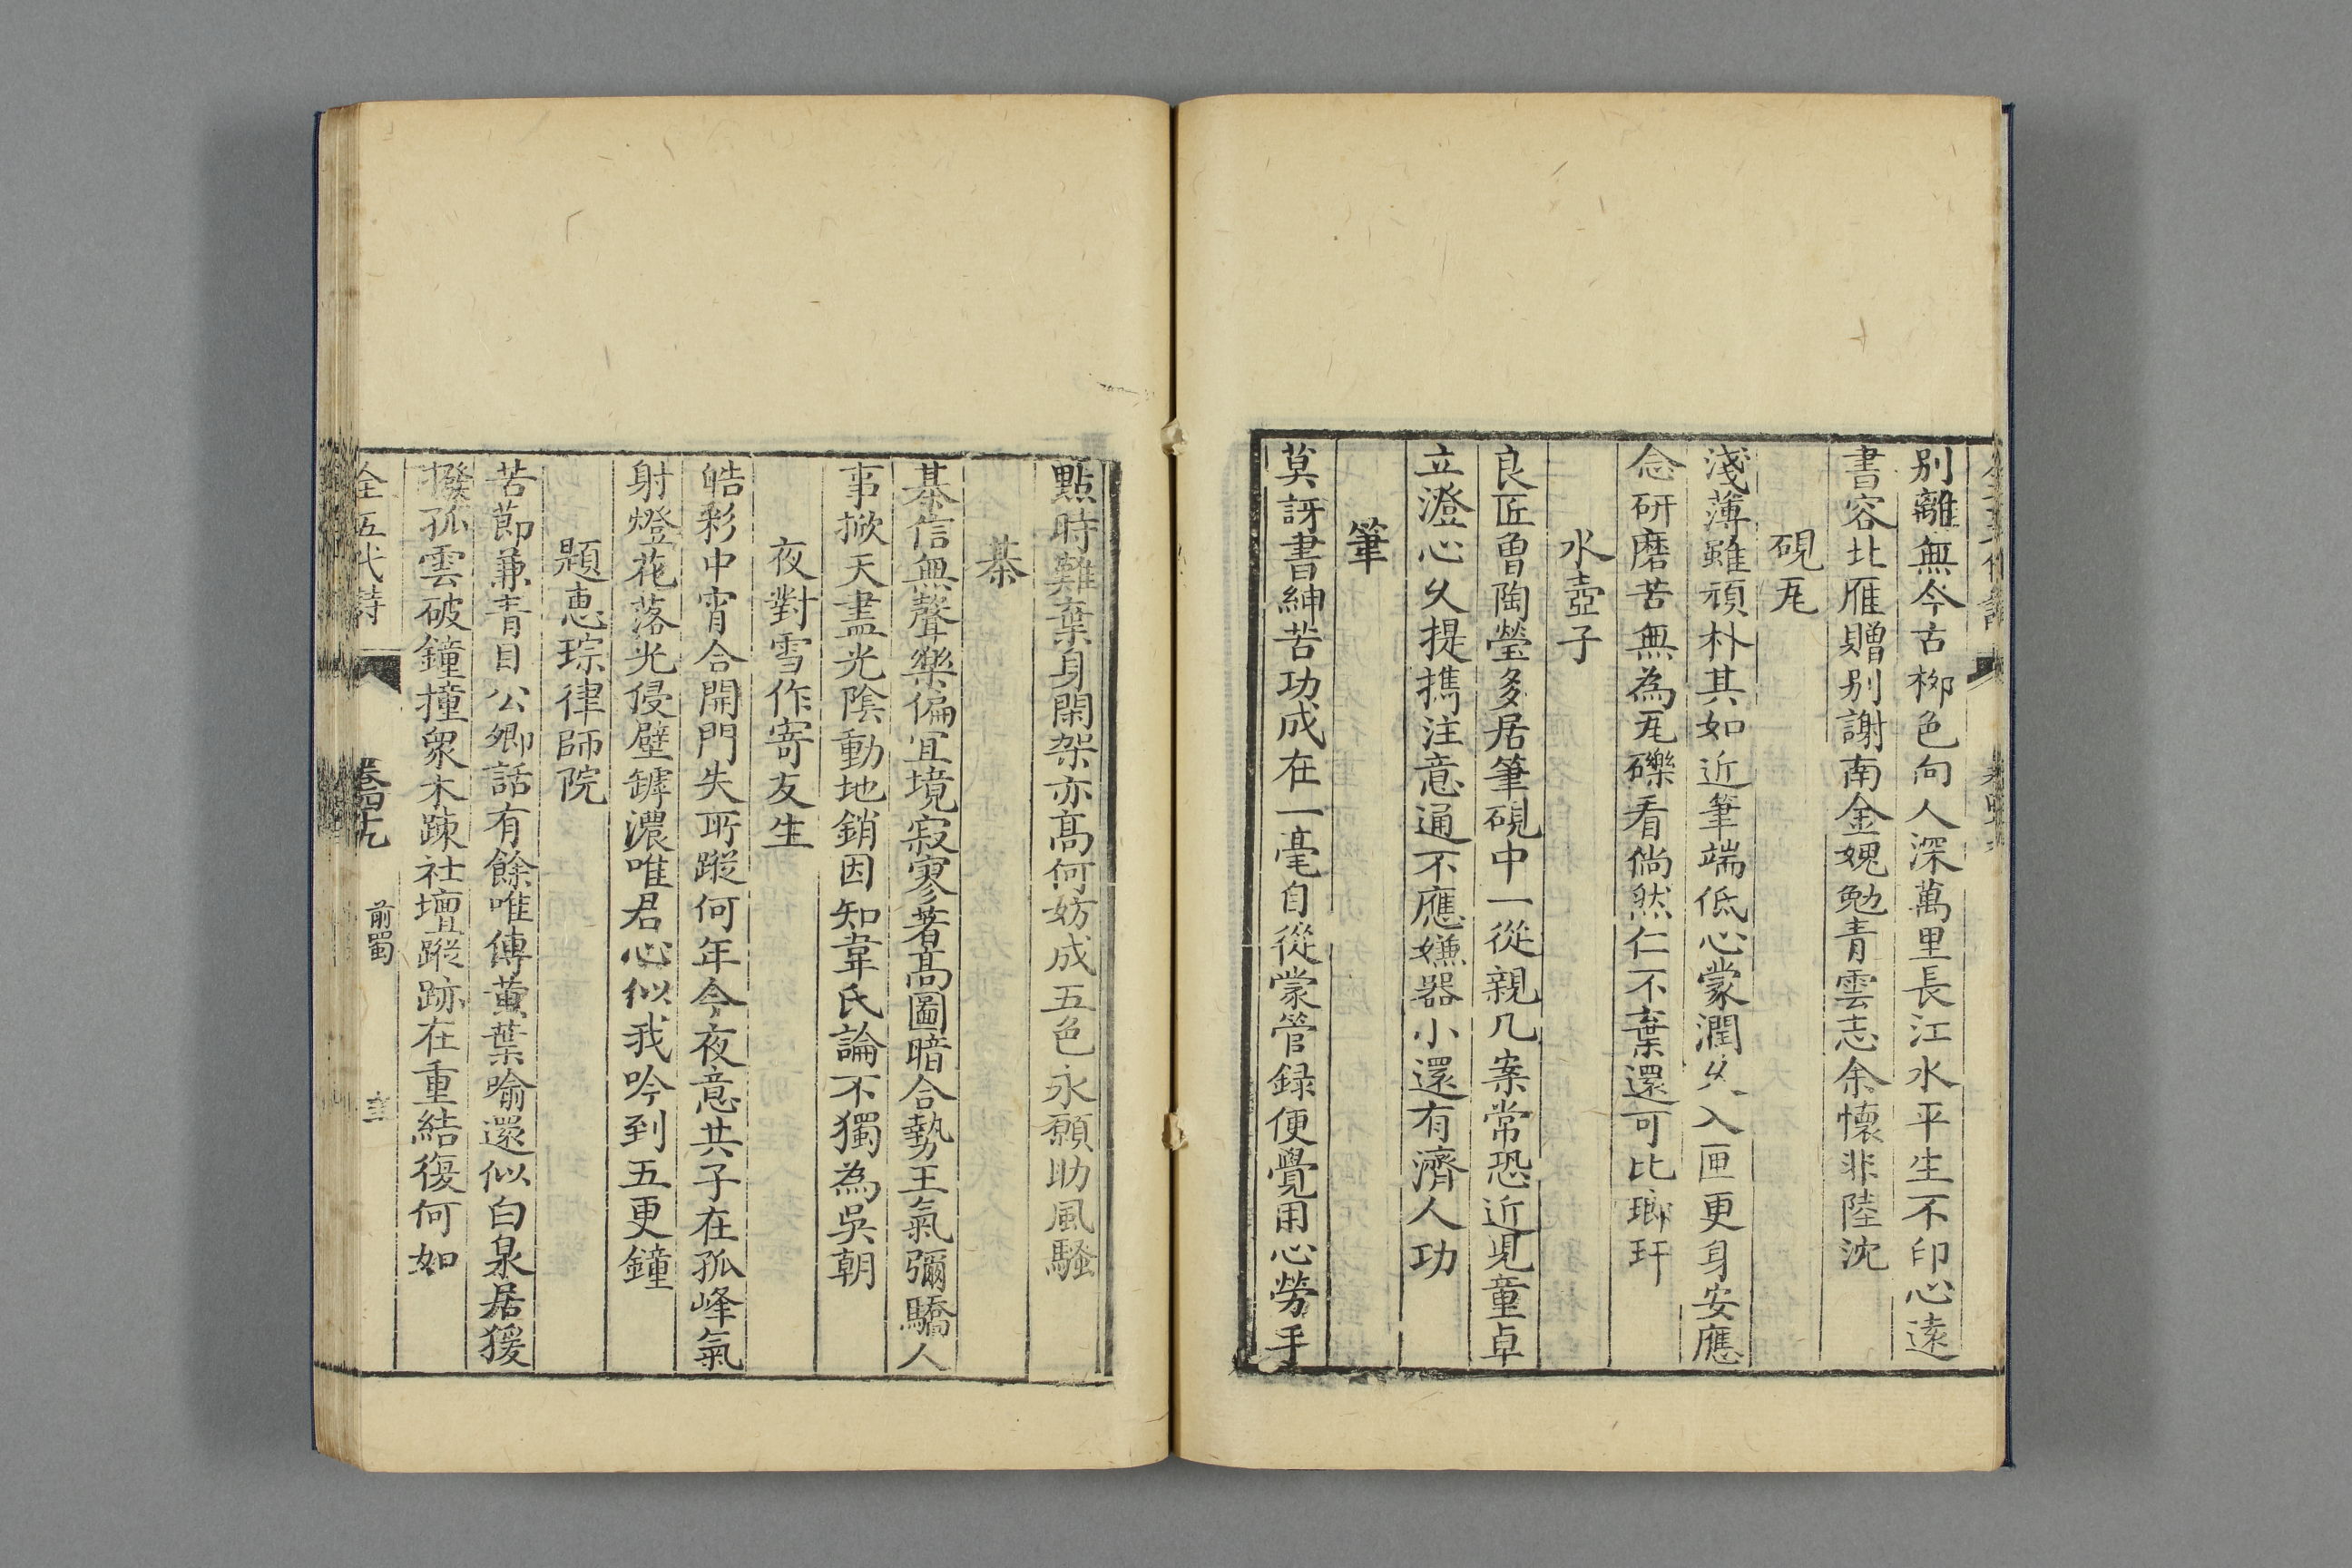 別離無今古栁色向人深萬里長江水平生不印心遠
書容北雁贈别謝南金媿勉青雲志余懷非陸沈
硯瓦
淺薄雖頑朴其如近筆端低心蒙潤久入匣更身安應
念研磨苦無為瓦礫看倘然仁不棄還可比瑯玕
水壺子
良匠曾陶瑩多居筆硯中一從親几案常恐近児童卓
立澄心久提擕注意通不應嫌器小還有濟人功
筆
莫訝書紳苦功成在一毫自從蒙管録便覺用心勞手
點時難棄身閑架亦高何妨成五色永願助風騷
棊
棊信無聲樂偏宜境寂寥著高圖暗合勢王氣彌驕人
事掀天盡光陰動地銷因知韋氏論不獨為吳朝
夜對雪作寄友生
皓彩中宵合開門失所蹤何年今夜意共子在孤峰氣
射燈花落光侵壁罅濃唯君心似我吟到五更鐘
題惠琮律師院
苦節兼青目公卿話有餘唯傳黄葉喻還似白泉居猨
撥孤雲破鐘撞衆木踈社壇蹤跡在重結復何如
全五代詩
卷四十九
前蜀